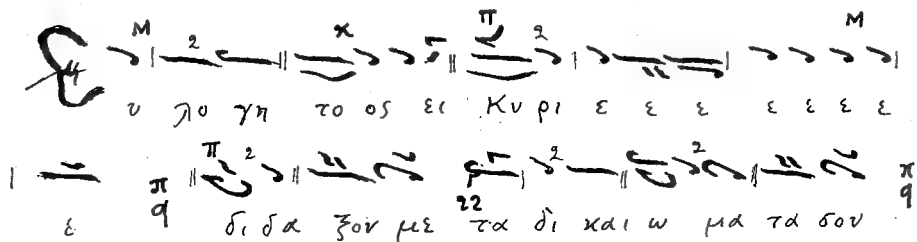 Ε υ λο γη το ος ει Κυ ρι ε ε ε ε ε ε ε
ε π q δι δα ξον με τα δι και ω μα τα σου π q